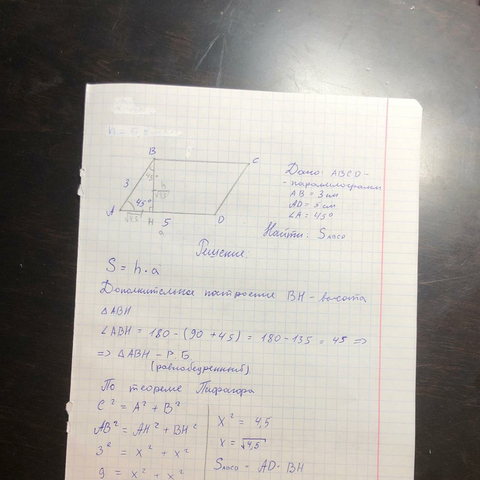 B
C
3
45°
h
√4,5
A
45°
H
5
D
√4,5
a
Дано: ABCD -
- параллилограмм
AB = 3 см
AD = 5 см
∠A = 45°
Найти: SABCD
Решение
S = h · a
Дополнительное построение BH - высота
△ABH
∠ABH = 180 - (90 + 45) = 180 - 135 = 45 =>
=> △ABH - Р.Б
(равнобедренный)
По теореме Пифагора
C² = A² + B²
AB² = AH² + BH²
3² = x² + x²
9 = x² + x²
x² = 4,5
x = √4,5
SABCD = AD · BH